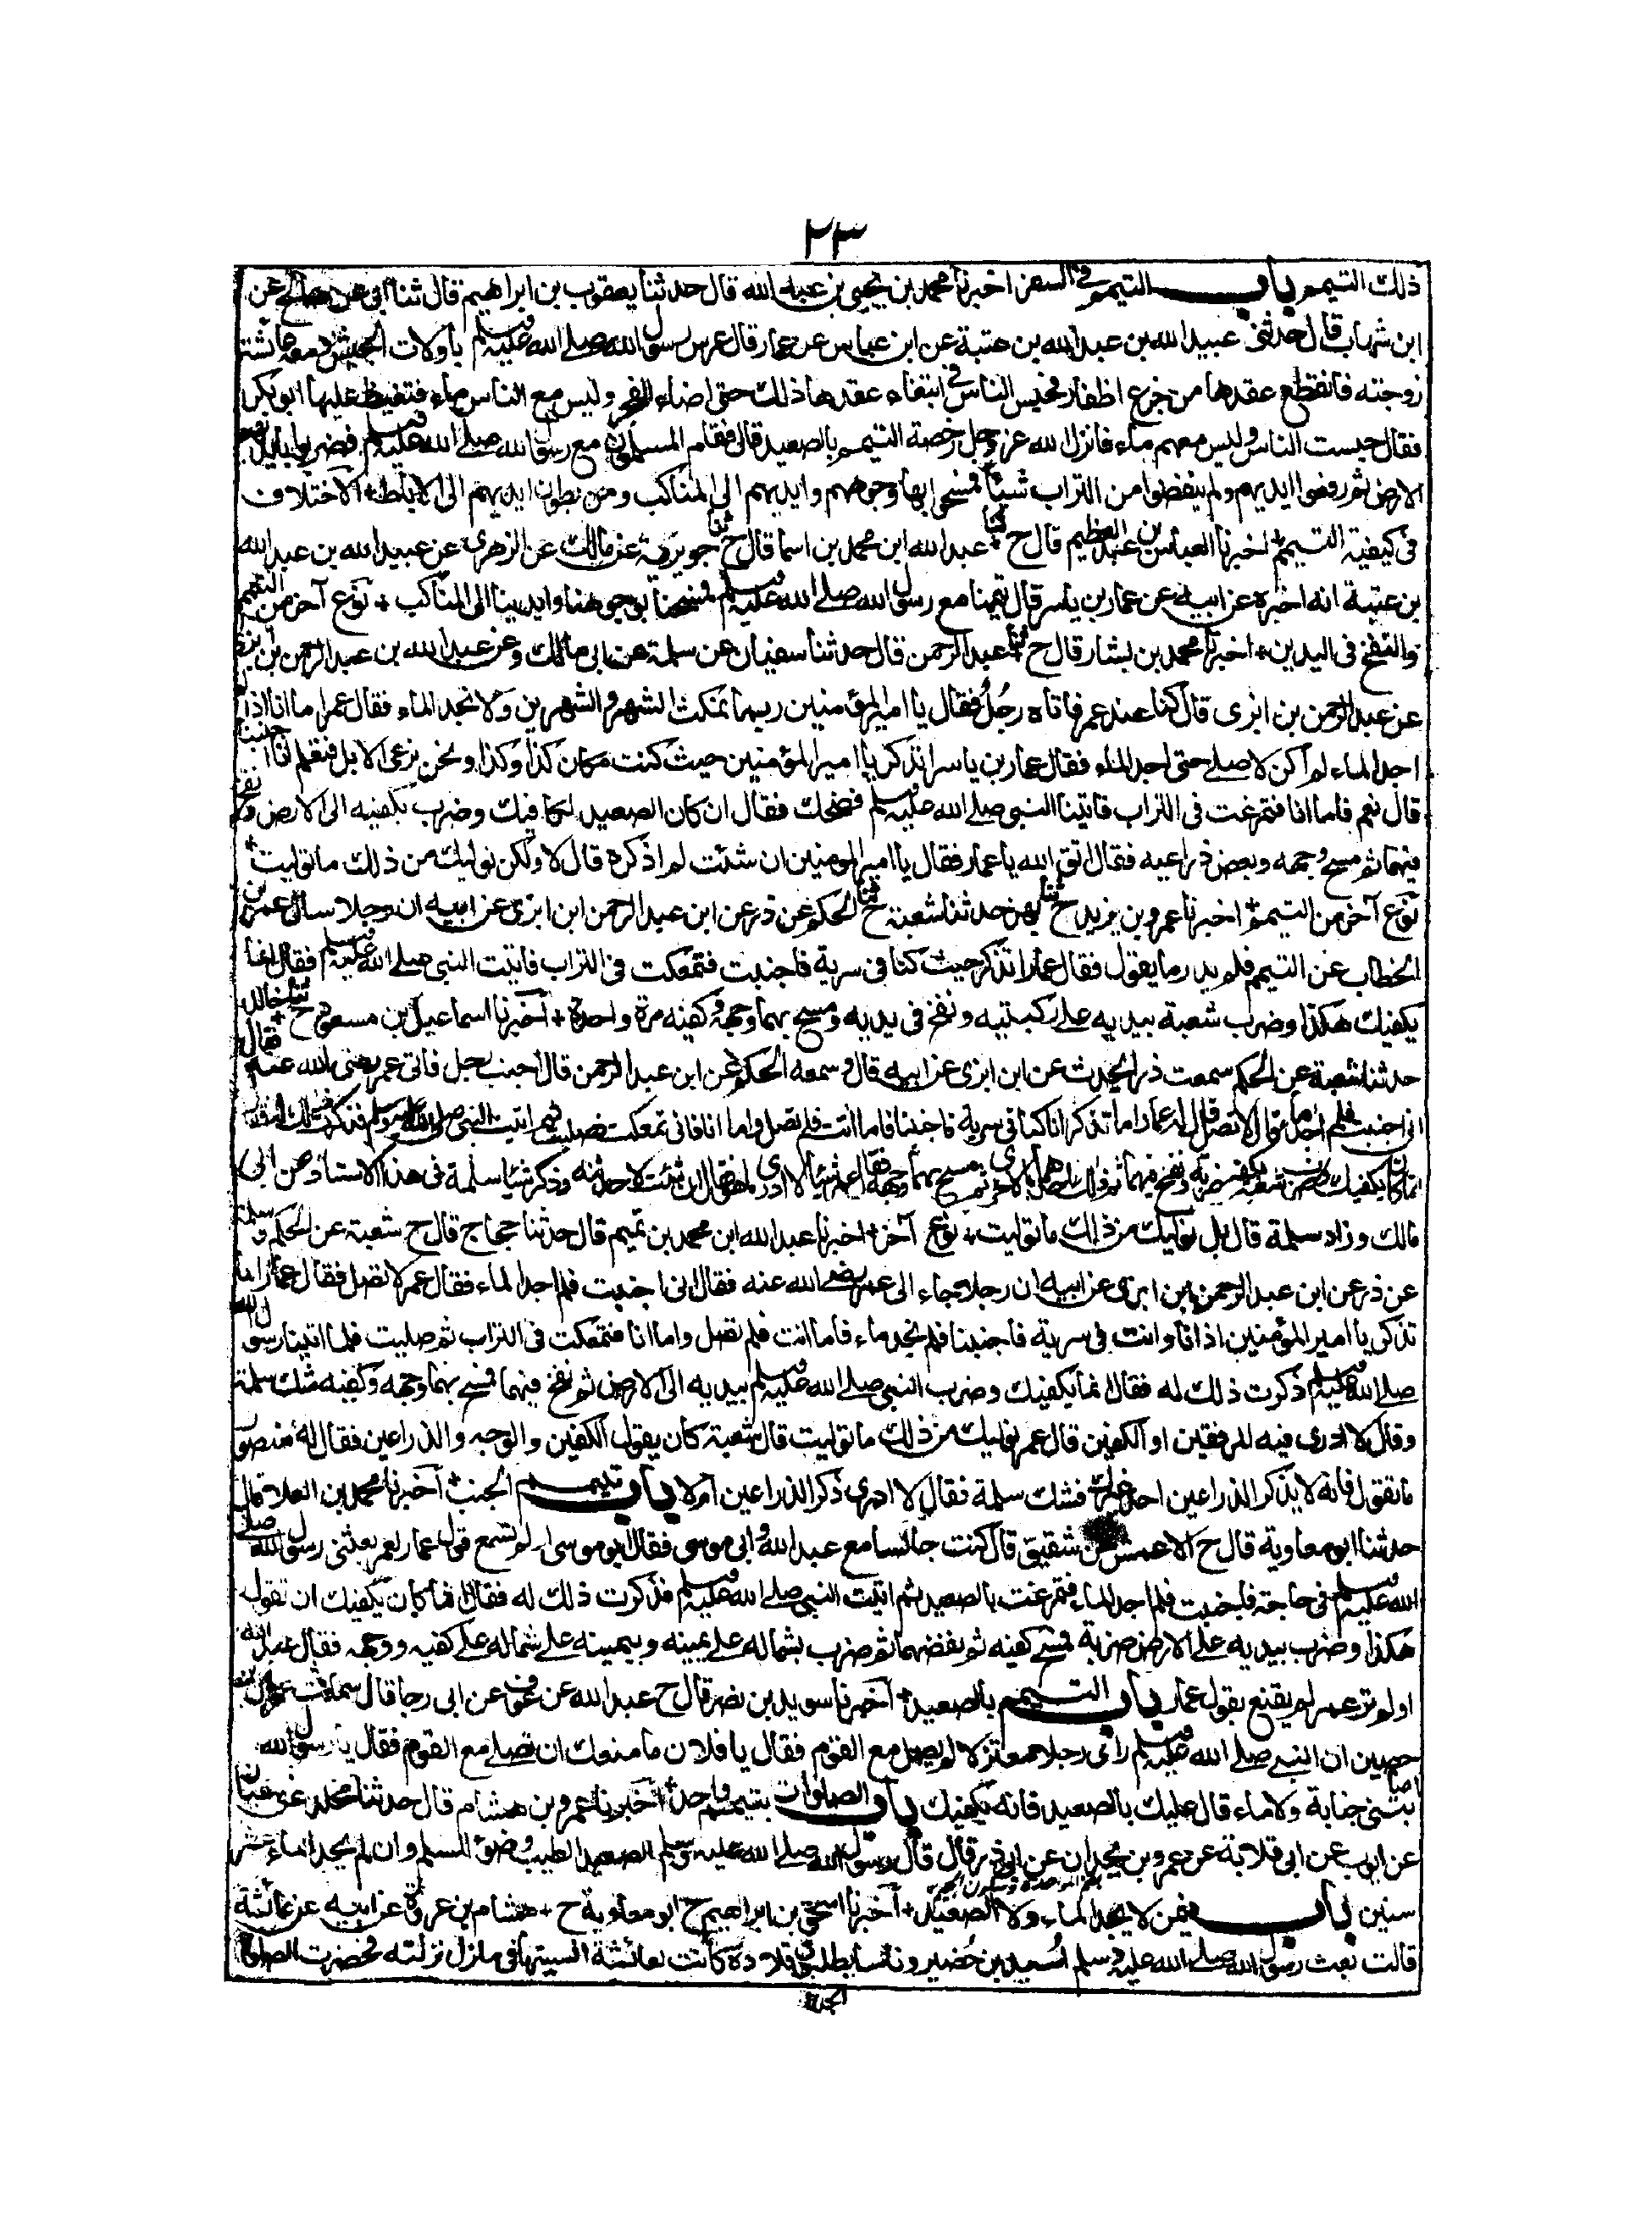 ٢٣
ذلك التيمم باب التيمم في السفر اخبرنا محمد بن يحيى بن عبد الله قال حدثنا يعقوب بن ابراهيم قال ثنا ابي عن صالح عن
ابن شهاب قال حدثني عبيد الله بن عبد الله بن عتبة عن ابن عباس عن عمار قال عرس رسول الله صلى الله عليه وسلم باولات الجيش ومعه عائشة
زوجته فانقطع عقدها من جزع اظفار فحبس الناس في ابتغاء عقدها ذلك حتى اضاء الفجر وليس مع الناس ماء فتغيظ عليها ابو بكر
فقال حبست الناس وليس معهم ماء فانزل الله عز وجل رخصة التيمم بالصعيد قال فقام المسلمون مع رسول الله صلى الله عليه وسلم فضربوا بايديهم
الارض ثم رفعوا ايديهم ولم ينفضوا من التراب شيئا فمسحوا بها وجوههم وايديهم الى المناكب ومن بطون ايديهم الى الاباط + الاختلاف
في كيفية التيمم + اخبرنا العباس بن عبد العظيم قال ح ثنا عبد الله ابن محمد بن اسما قال ح ثنا جويرية عن مالك عن الزهري عن عبيد الله بن عبد الله
بن عتبة انه اخبره عن ابيه عن عمار بن ياسر قال تيممنا مع رسول الله صلى الله عليه وسلم فمسحنا بوجوهنا وايدينا الى المناكب + نوع آخر من التيمم
والنفخ في اليدين + اخبرنا محمد بن بشار قال ح ثنا عبد الرحمن قال حدثنا سفيان عن سلمة عن ابي مالك وعن عبد الله بن عبد الرحمن بن ابزى
عن عبد الرحمن بن ابزى قال كنا عند عمر فاتاه رجل فقال يا امير المؤمنين ربما نمكث الشهر والشهرين ولا نجد الماء فقال عمر اما انا اذا لم
اجد الماء لم اكن لاصلي حتى اجد الماء فقال عمار بن ياسر اتذكر يا امير المؤمنين حيث كنت مكان كذا وكذا ونحن نرعى الابل فتعلم انا اجنبنا
قال نعم فاما انا فتمرغت في التراب فاتينا النبي صلى الله عليه وسلم فضحك فقال ان كان الصعيد لكافيك وضرب بكفيه الى الارض ونفخ
فيهما ثم مسح وجهه وبعض ذراعيه فقال اتق الله يا عمار فقال يا امير المومنين ان شئت لم اذكره قال لا ولكن نوليك من ذلك ما توليت +
نوع آخر من التيمم + اخبرنا عمرو بن يزيد ح ثنا بهز حدثنا شعبة ح ثنا الحكم عن ذر عن ابن عبد الرحمن ابن ابزى عن ابيه ان رجلا سال عمر بن
الخطاب عن التيمم فلم يدر ما يقول فقال عمار اتذكر حيث كنا في سرية فاجنبت فتمعكت في التراب فاتيت النبي صلى الله عليه وسلم فقال انما
يكفيك هكذا وضرب شعبة بيديه على ركبتيه ونفخ في يديه ومسح بهما وجهه وكفيه مرة واحدة + اخبرنا اسماعيل بن مسعود ح ثنا خالد
حدثنا شعبة عن الحكم سمعت ذر يحدث عن ابن ابزى عن ابيه قال وسمعه الحكم عن ابن عبد الرحمن قال اجنب رجل فاتى عمر رضي الله عنه فقال
اني اجنبت فلم اجد ماء قال لا تصل قال له عمار اما تذكر انا كنا في سرية فاجنبنا فاما انت فلم تصل واما انا فاني تمعكت فصليت ثم اتيت النبي صلى الله عليه وسلم فذكرت ذلك له فقال
انما كان يكفيك وضرب شعبة بكفيه ضربة ونفخ فيهما ثم دلك احداهما بالاخرى ثم مسح بهما وجهه فقال عمر شيئا لا ادري ما هو فقال ان شئت لا حدثته وذكر شيئا سلمة في هذا الاستاد عن ابي
مالك وزاد سلمة قال بل نوليك من ذلك ما توليت + نوع آخر + اخبرنا عبد الله ابن محمد بن تميم قال حدثنا حجاج قال ح شعبة عن الحكم و سلمة
عن ذر عن ابن عبد الرحمن بن ابزى عن ابيه ان رجلا جاء الى عمر رضي الله عنه فقال اني اجنبت فلم اجد الماء فقال عمر لا تصل فقال عمار اما
تذكر يا امير المؤمنين اذ انا وانت في سرية فاجنبنا فلم نجد ماء فاما انت فلم تصل واما انا فتمعكت في التراب ثم صليت فلما اتينا رسول الله
صلى الله عليه وسلم ذكرت ذلك له فقال انما يكفيك وضرب النبي صلى الله عليه وسلم بيديه الى الارض ثم نفخ فيهما فمسح بهما وجهه وكفيه شك سلمة
وقال لا ادري فيه المرفقين او الكفين قال عمر نوليك من ذلك ما توليت قال شعبة كان يقول الكفين والوجه والذراعين فقال له منصور
ما تقول فانه لا يذكر الذراعين احد غيرك فشك سلمة فقال لا ادري ذكر الذراعين ام لا باب تيمم الجنب + اخبرنا محمد بن العلا قال
حدثنا ابو معاوية قال ح الاعمش عن شقيق قال كنت جالسا مع عبد الله وابي موسى فقال ابو موسى او لم تسمع قول عمار لعمر بعثني رسول الله صلى
الله عليه وسلم في حاجة فاجنبت فلم اجد الماء فتمرغت بالصعيد ثم اتيت النبي صلى الله عليه وسلم فذكرت ذلك له فقال انما كان يكفيك ان تقول
هكذا وضرب بيديه على الارض ضربة فمسح كفيه ثم نفضهما ثم ضرب بشماله على يمينه وبيمينه على شماله على كفيه ووجهه فقال عبد الله
اولم تر عمر لم يقنع بقول عمار باب التيمم بالصعيد + اخبرنا سويد بن نصر قال ح عبد الله عن عوف عن ابي رجا قال سمعت عمران بن
حصين ان النبي صلى الله عليه وسلم راى رجلا معتزلا لم يصل مع القوم فقال يا فلان ما منعك ان تصلي مع القوم فقال يا رسول الله
اصابتني جنابة ولا ماء قال عليك بالصعيد فانه يكفيك باب الصلوات بتيمم واحد + اخبرنا عمرو بن هشام قال حدثنا مخلد عن سفيان
عن ايوب عن ابي قلابة عن عمرو بن بجدان عن ابي ذر قال قال رسول الله صلى الله عليه وسلم الصعيد الطيب وضوء المسلم وان لم يجد الماء عشر
سنين باب فيمن لا يجد الماء ولا الصعيد + اخبرنا اسحق بن ابراهيم ح ابو معاوية ح + هشام بن عروة عن ابيه عن عائشة
قالت بعث رسول الله صلى الله عليه وسلم اسيد بن حضير وناسا يطلبون قلادة كانت لعائشة نسيتها في منزل نزلته فحضرت الصلوة